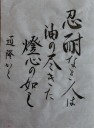 忍耐なき人は
油の尽きた
燈心の如し